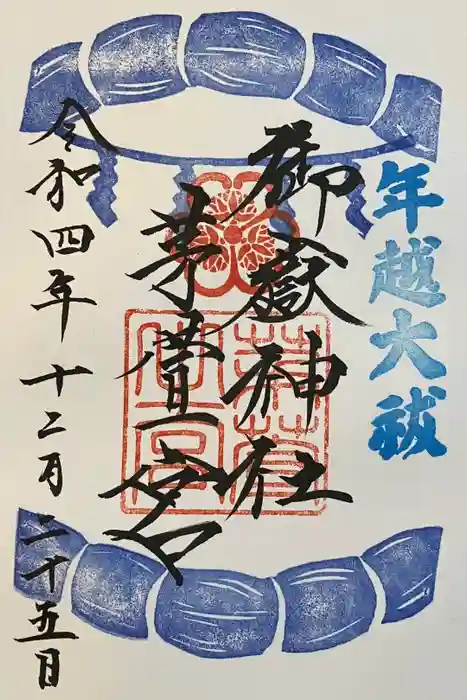 年越大祓
御嶽神社
茅萱宮
令和四年十二月二十五日